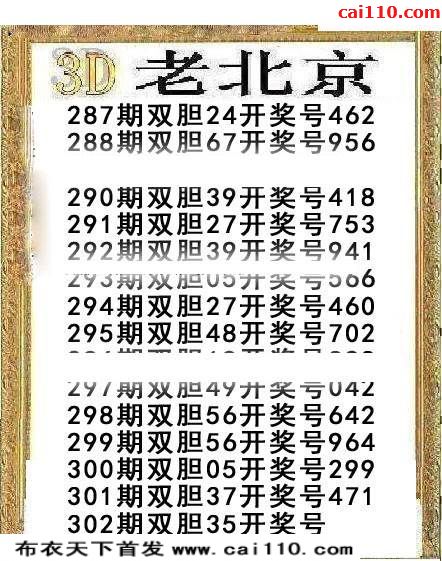 cai110.com
3D 老北京
287期双胆24开奖号462
288期双胆67开奖号956
290期双胆39开奖号418
291期双胆27开奖号753
292期双胆39开奖号941
293期双胆05开奖号566
294期双胆27开奖号460
295期双胆48开奖号702
297期双胆49开奖号042
298期双胆56开奖号642
299期双胆56开奖号964
300期双胆05开奖号299
301期双胆37开奖号471
302期双胆35开奖号
布衣天下首发 www.cai110.com